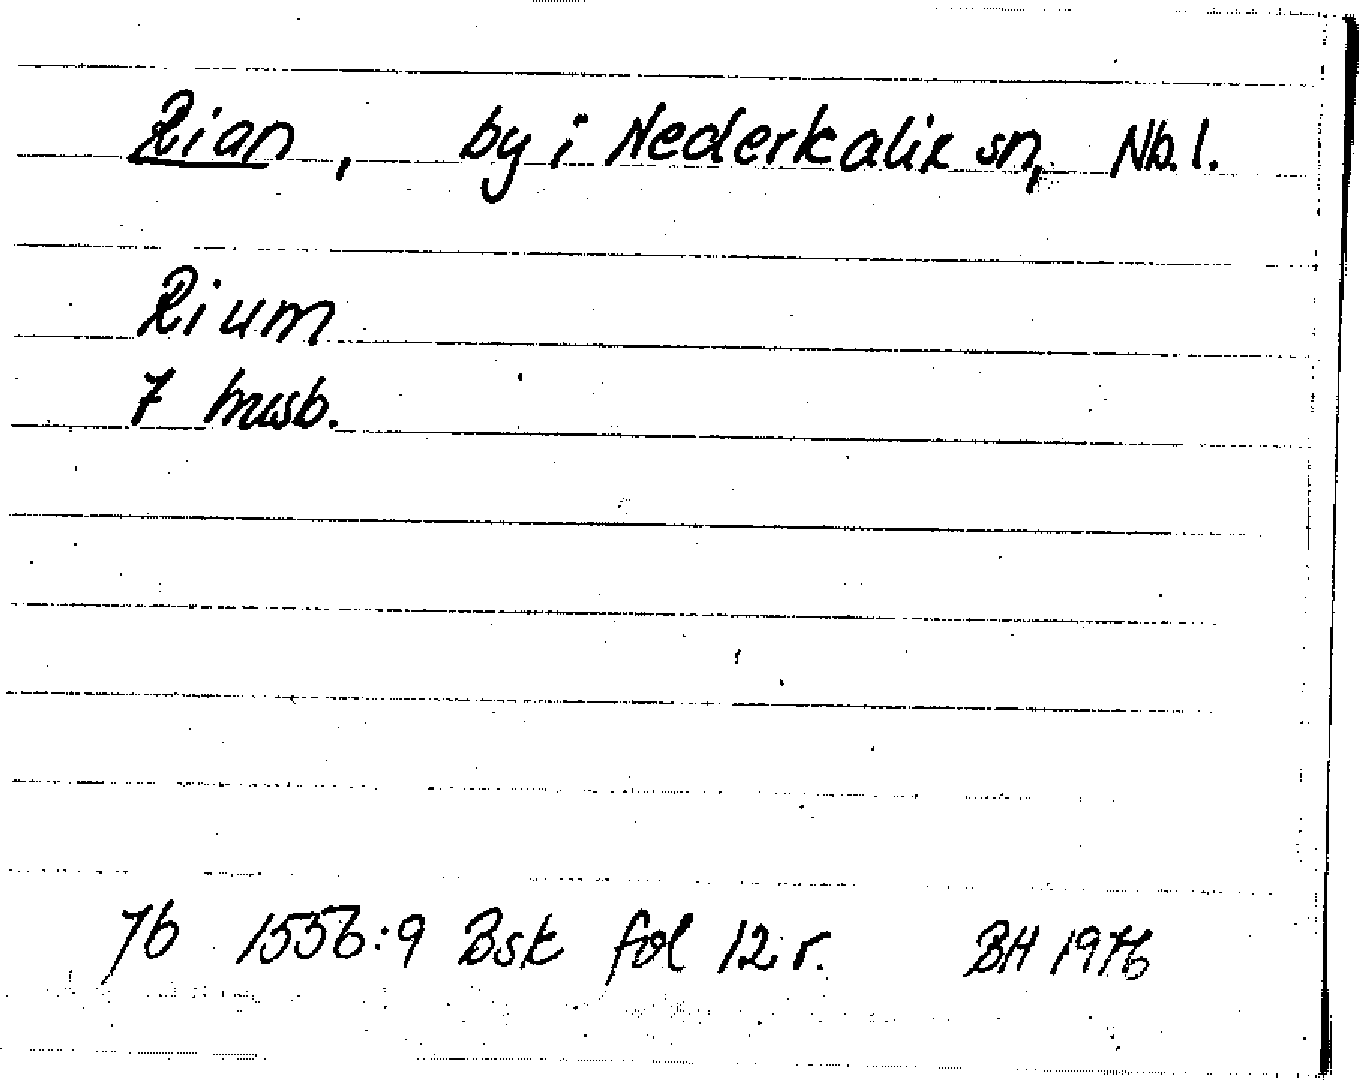 Rian, by i Nederkalix sn, Nb. l.
Rium
7 husb.
Jb 1556:9 Bsk fol 12 r. BH 1976